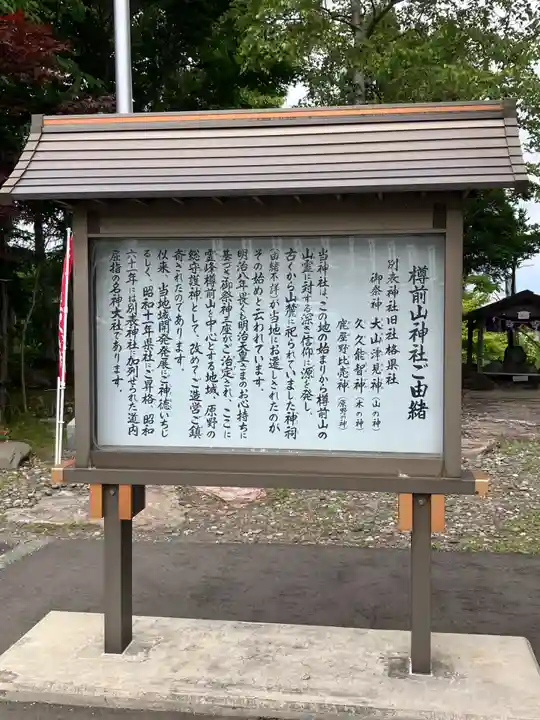 樽前山神社ご由緒
別表神社旧社格県社
御祭神 大山津見神（山の神）
久久能智神（木の神）
鹿屋野比売神（原野の神）
当神社は、この地の始まりから樽前山の
山霊に対する深き信仰に源を発し、
古くから山麓に祀られていました神祠
（由緒不詳）が当地にお遷しされたのが
その始めと云われています。
明治八年畏くも明治天皇さまのお心持ちに
基づき御祭神三座がご治定され、ここに
霊峰樽前山を中心とする地域、原野の
総守護神として、改めてご造営ご鎮
斎されたのであります。
以来、当地域開発発展にご神徳いちじ
るしく、昭和十一年県社にご昇格、昭和
六十一年には別表神社に加列せられた道内
屈指の名神大社であります。